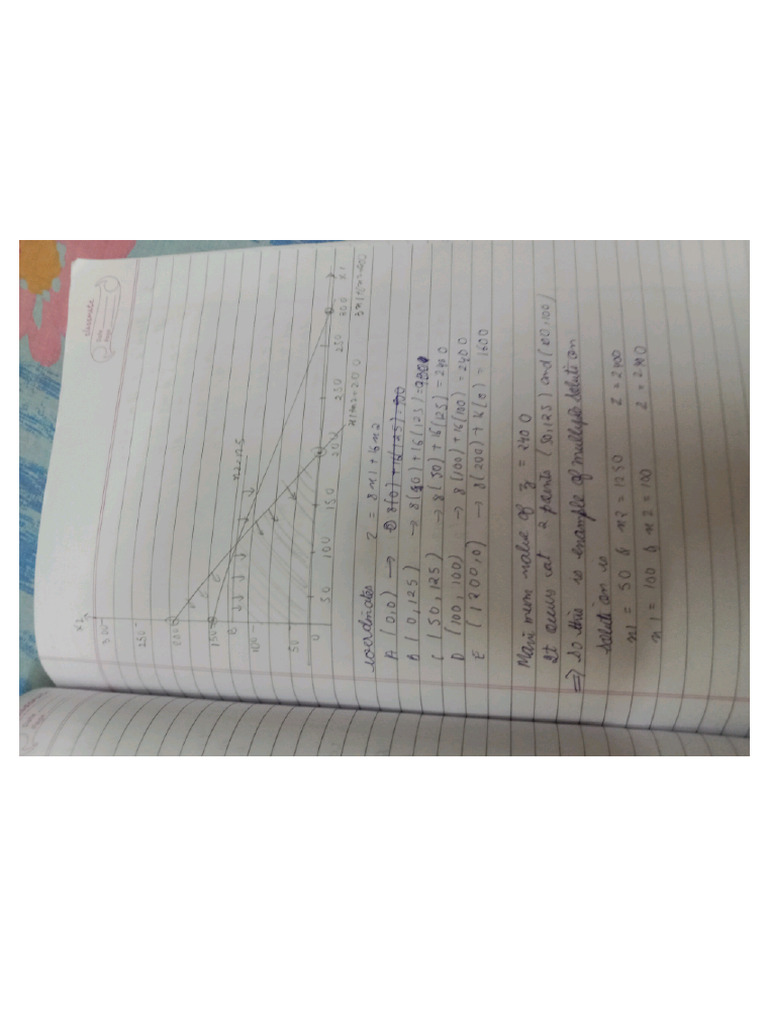 classmate
Date
Page
x2
300
250
200
150
B
100
50
0
50
100
150
200
250
300
x1
x2=125
x1+x2=200
coordinates Z = 8x1 + 16x2
A (0,0) →
B (0,125) → 8(0)+16(125)=2000
C (50,125) → 8(50)+16(125)=2400
D (100,100) → 8(100)+16(100)=2400
E (1200,0) → 8(200)+16(0) = 1600
Maximum value of z = 2400
It occurs at 2 points (50,125) and (100,100)
⇒ So this is example of multiple solution
Solution is
x1 = 50 & x2 = 1250 Z = 2400
x1 = 100 & x2 = 100 Z = 2400